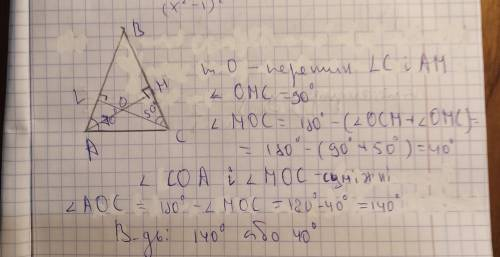 (x²-1)²
B
L
O
M
50°
70°
A
C
т. O - перетин LC і AM
∠ OMC = 90°
∠ MOC = 180° - (∠OCM + ∠OMC) =
= 180° - (90° + 50°) = 40°
∠ COA і ∠ MOC - суміжні
∠AOC = 180° - ∠ MOC = 180° - 40° = 140°
В-дь: 140° або 40°